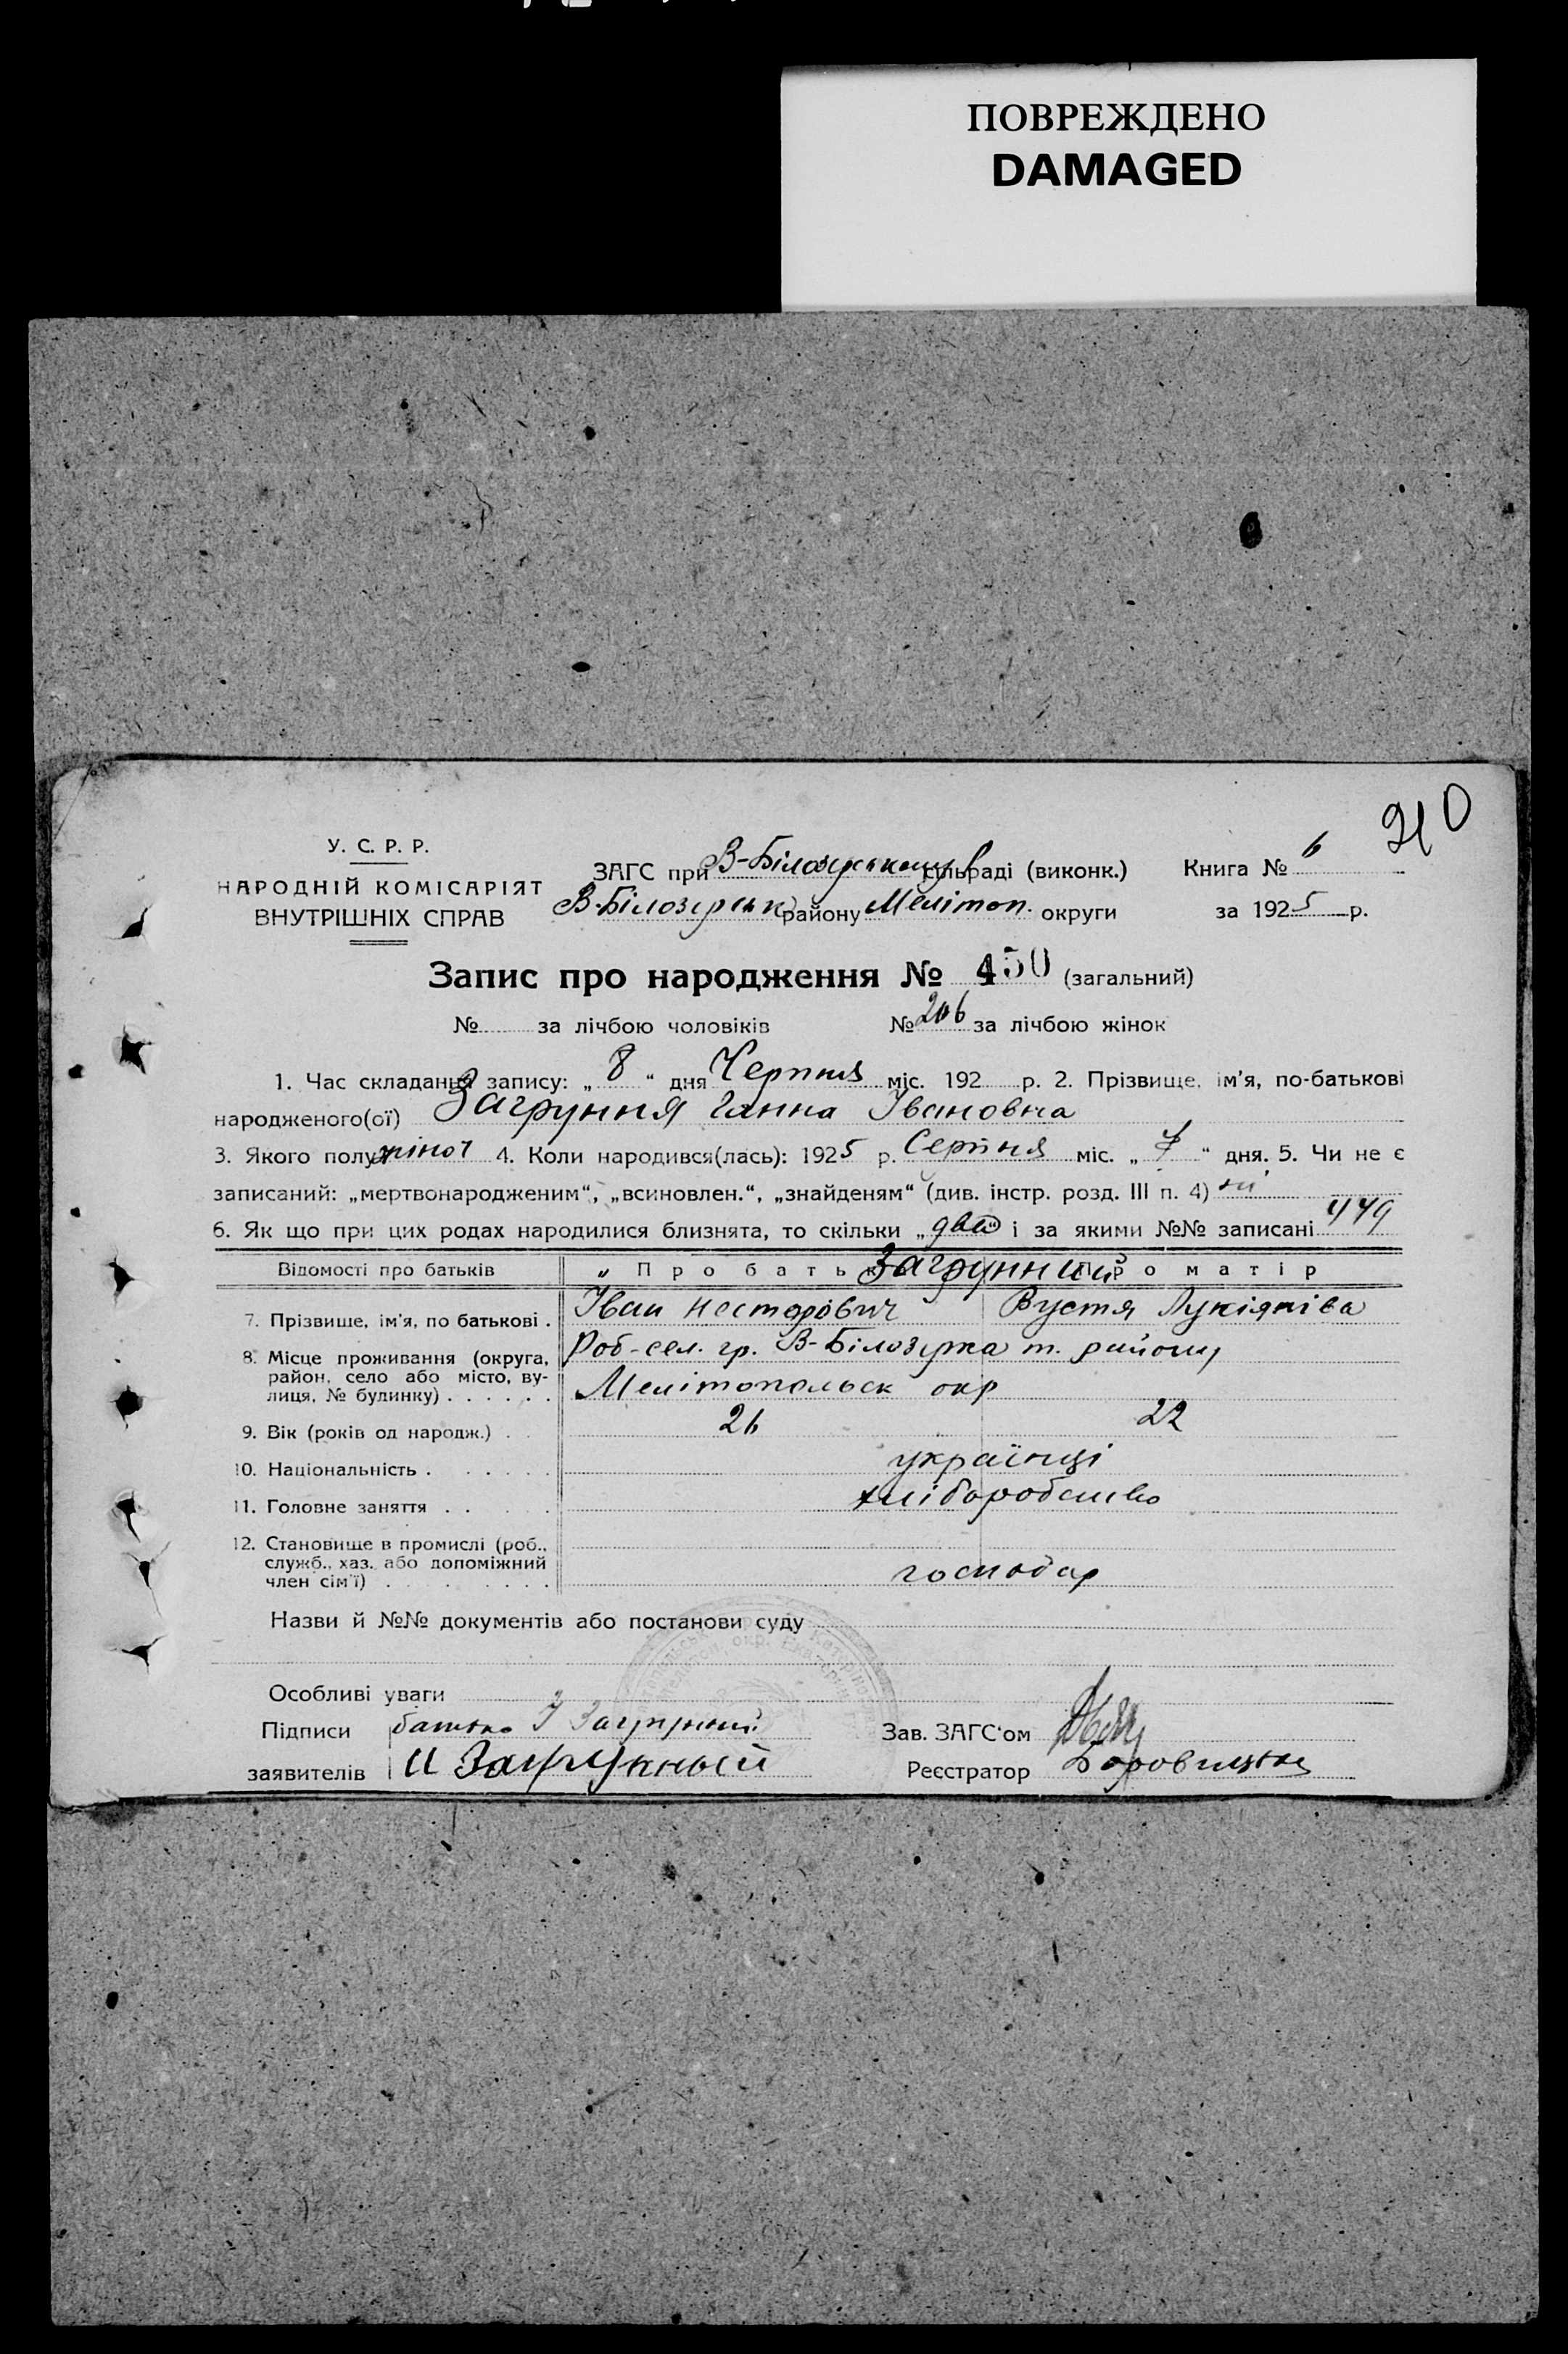 ПОВРЕЖДЕНО
DAMAGED
210
У. С. Р. Р.
НАРОДНІЙ КОМІСАРІЯТ
ВНУТРІШНІХ СПРАВ
ЗАГС при В-Білозерському сільраді (виконк.) Книга № 6
В-Білозерськ району Мелітоп. округи за 1925 р.
Запис про народження № 450 (загальний)
№ за лічбою чоловіків № 206 за лічбою жінок
1. Час складання запису: „ 8 “ дня Серпня міс. 192 р. 2. Прізвище, ім'я, по-батькові
народженого(ої) Загруння Ганна Івановна
3. Якого полу жіноч 4. Коли народився(лась): 1925 р. Серпня міс. „ 7 “ дня. 5. Чи не є
записаний: „мертвонародженим“, „всиновлен.“, „знайденям“ (див. інстр. розд. III п. 4) ні
6. Як що при цих родах народилися близнята, то скільки „ двое “ і за якими №№ записані 449
Відомості про батьків " Про батька Загрунний Про матір
7. Прізвище, ім'я, по батькові . Іван Несторович Вустя Лукіянівa
8. Місце проживання (округа, район, село або місто, вулиця, № будинку) . . . . . . Роб-сел. гр. В-Білозерка т. району
Мелітопольск окр
9. Вік (років од народж.) . . 26 22
10. Національність . . . . . . українці
11. Головне заняття . . . . хліборобство
12. Становище в промислі (роб., служб., хаз. або допоміжний член сім'ї) . . . . . . господар
Назви й №№ документів або постанови суду
Особливі уваги
Підписи батько І Загрунний Зав. ЗАГС'ом
заявителів И Загрунный Реєстратор